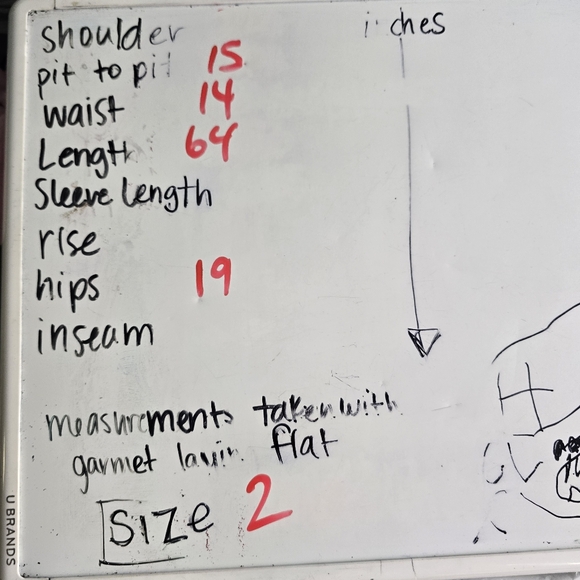 shoulder inches
pit to pit 15
waist 14
Length 64
Sleeve Length
rise
hips 19
inseam
measurments taken with
garmet layin flat
Size 2
U BRANDS